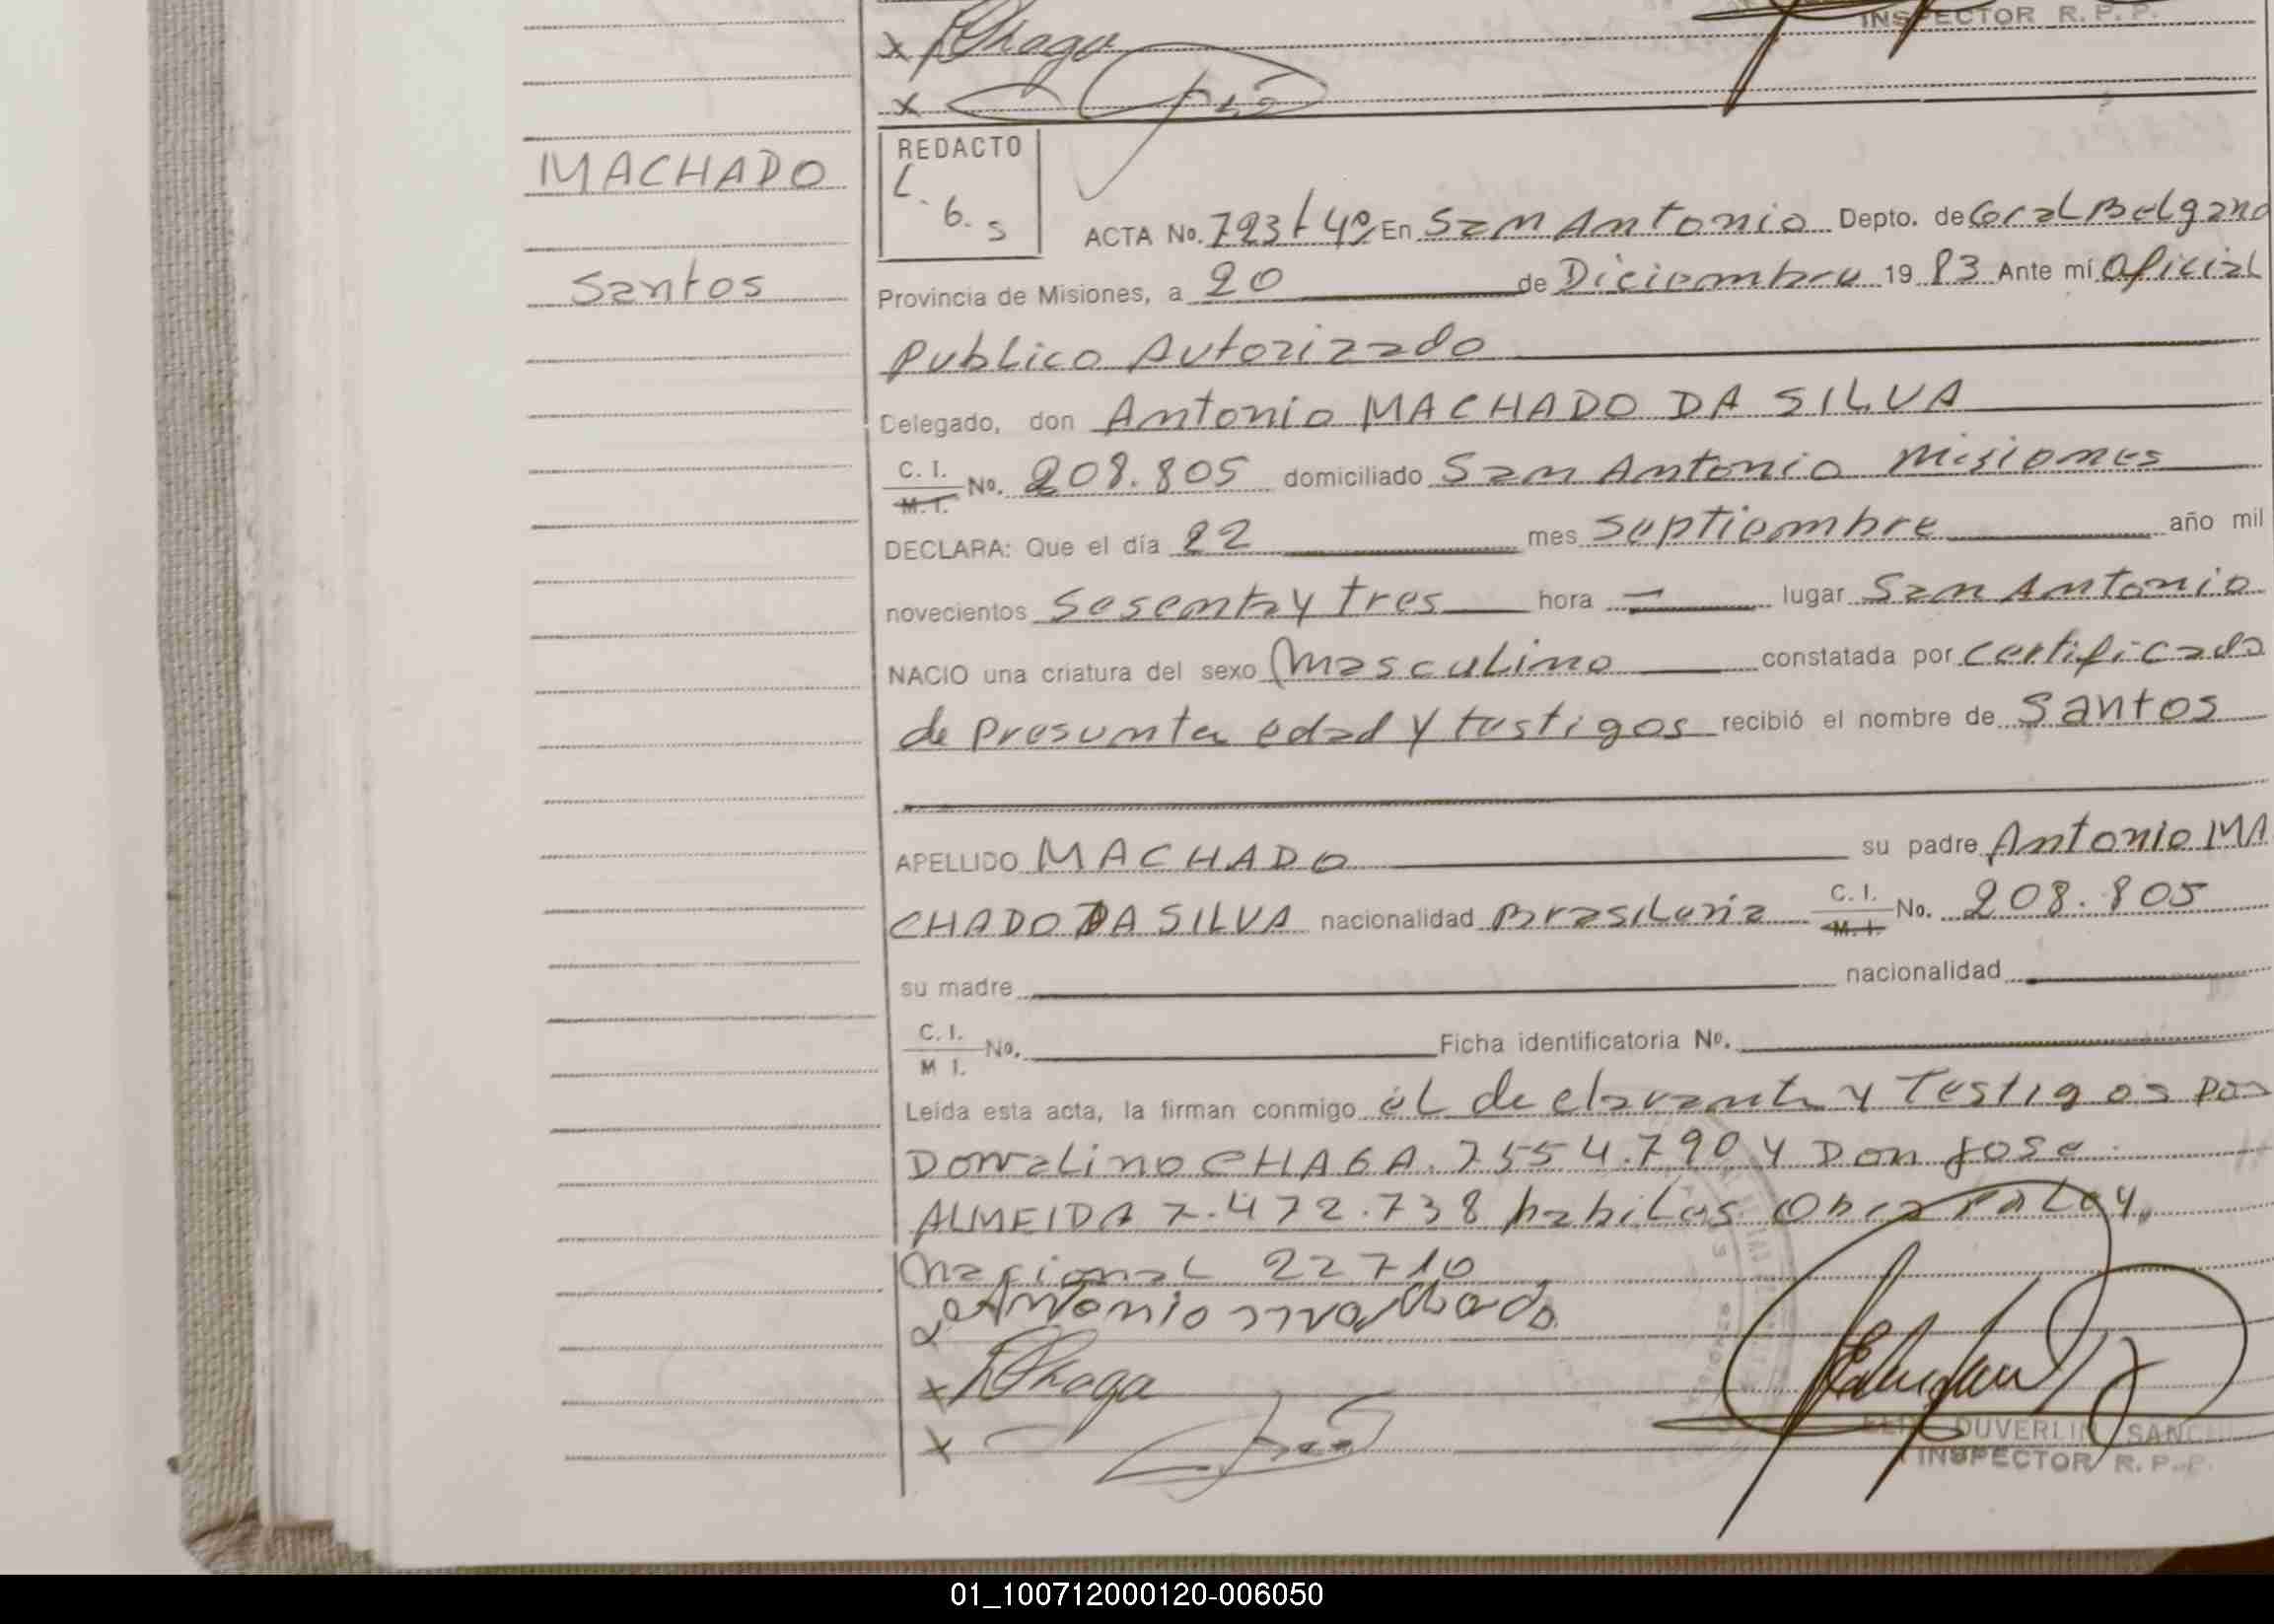 x Chaga
INSPECTOR R. P. P.
x
MACHADO
Santos
REDACTO
L. G. S
ACTA No. 793 t 4º En San Antonio Depto. de Gral Belgrano
Provincia de Misiones, a 20 de Diciembre 19 83 Ante mí Oficial
Publico Autorizado
Delegado, don Antonio MACHADO DA SILVA
C. I.
M. I. No. 208.805 domiciliado San Antonio Misiones
DECLARA: Que el día 22 mes Septiembre año mil
novecientos Sesenta y tres hora lugar San Antonio
NACIO una criatura del sexo Masculino constatada por certificado
de presunta edad y testigos recibió el nombre de Santos
APELLIDO MACHADO su padre Antonio MA
CHADO DA SILVA nacionalidad Brasileria C. I. M. I. No. 208.805
su madre nacionalidad
C. I.
M I. No. Ficha identificatoria No.
Leída esta acta, la firman conmigo el declarante y Testigos Don
Dorvalino CHAGA. 7554.790 y Don Jose
ALMEIDA 7.472.738 habiles Obra Ley
Nacional 22710
Antonio Machado
x Chaga
x
DUVERLIN SANCH
INSPECTOR R. P. P.
01_100712000120-006050